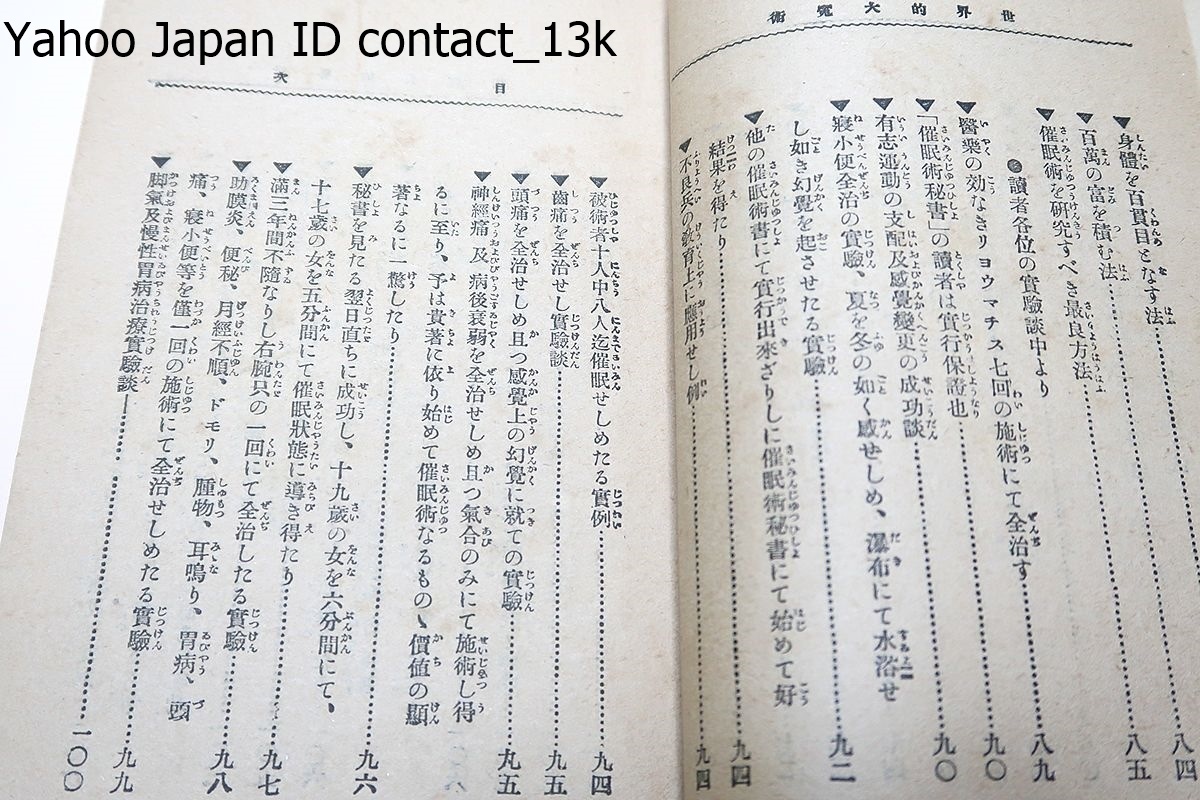 Yahoo Japan ID contact_13k
世界的大寳術
▼身體を百貫目となす法……八四
▼百萬の富を積む法……八五
▼催眠術を研究すべき最良方法……八九
●讀者各位の實驗談中より
▼醫藥の効なきリヨウマチス七回の施術にて全治す……九〇
▼「催眠術秘書」の讀者は實行保證也……九〇
▼有志運動の支配及感覺變更の成功談
▼寢小便全治の實驗、夏を冬の如く感せしめ、瀑布にて水浴せ
し如き幻覺を起させたる實驗……九二
▼他の催眠術書にて實行出來ざりしに催眠術秘書にて始めて好
結果を得たり……九四
▼不良兵の敎育上に應用せし例……九四
目次
▼被術者十人中八人迄催眠せしめたる實例……九四
▼齒痛を全治せし實驗談……九五
▼頭痛を全治せしめ且つ感覺上の幻覺に就ての實驗……九五
▼神經痛及病後衰弱を全治せしめ且つ氣合のみにて施術し得
るに至り、予は貴著に依り始めて催眠術なるものゝ價値の顯
著なるに一驚したり……九六
▼秘書を見たる翌日直ちに成功し、十九歲の女を六分間にて、
十七歲の女を五分間にて催眠狀態に導き得たり……九七
▼滿三年間不隨なりし右腕只の一回にて全治したる實驗……九八
▼肋膜炎、便秘、月經不順、ドモリ、腫物、耳鳴り、胃病、頭
痛、寢小便等を僅一回の施術にて全治せしめたる實驗……九九
▼脚氣及慢性胃病治療實驗談……一〇〇